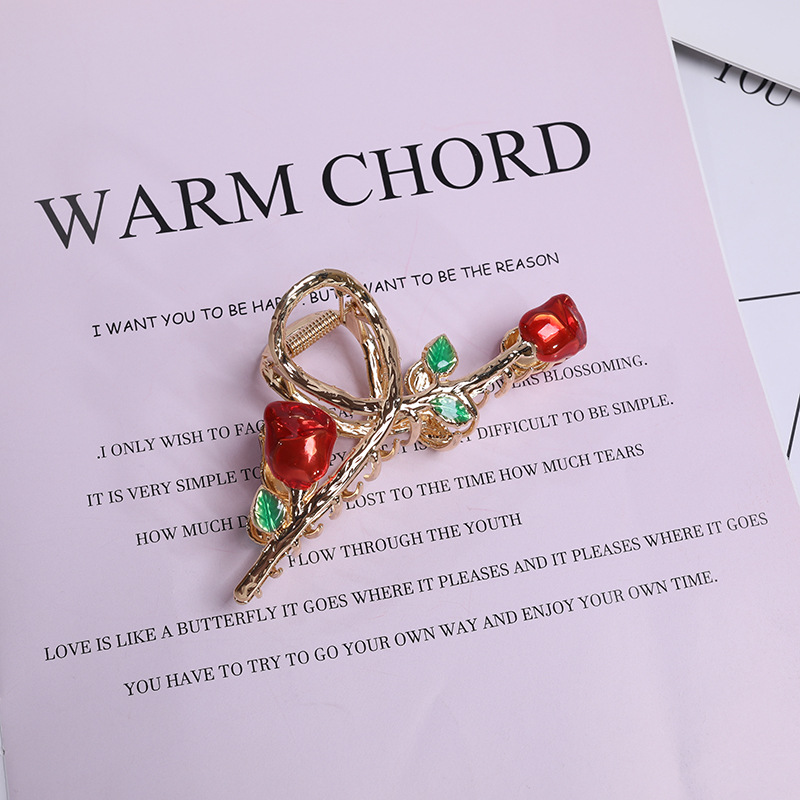 YOU
WARM CHORD
I WANT YOU TO BE HAP. BUT WANT TO BE THE REASON
.I ONLY WISH TO FAC BLOSSOMING.
IT IS VERY SIMPLE TO IS DIFFICULT TO BE SIMPLE.
HOW MUCH LOST TO THE TIME HOW MUCH TEARS
FLOW THROUGH THE YOUTH
LOVE IS LIKE A BUTTERFLY IT GOES WHERE IT PLEASES AND IT PLEASES WHERE IT GOES
YOU HAVE TO TRY TO GO YOUR OWN WAY AND ENJOY YOUR OWN TIME.